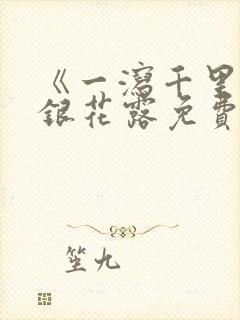 《一瀉千里
銀花露免費
笙九